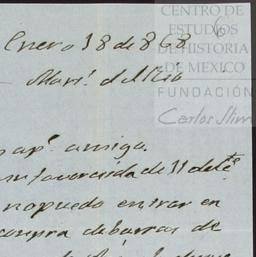 CENTRO DE
ESTUDIOS
DE HISTORIA
DE MEXICO
FUNDACIÓN
Carlos Slim
6
Enero 18 de 868
Mar.l del Rio
ap.e amigo.
favorecida de 11 del c.te
no puedo entrar en
compra de barras de